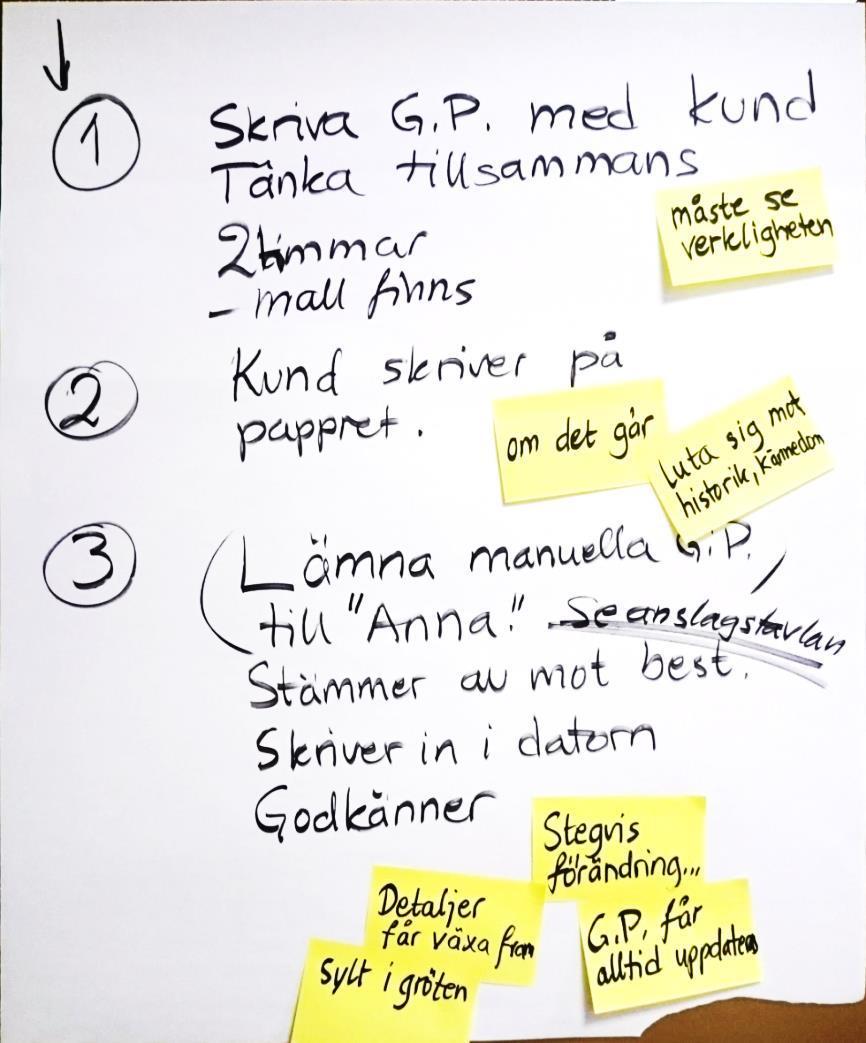 1
Skriva G.P. med kund
Tänka tillsammans
2timmar
- mall finns
måste se
verkligheten
2
Kund skriver på
pappret.
om det går
Luta sig mot
historik, kännedom
3
(Lämna manuella G.P.)
till "Anna!" Se anslagstavlan
Stämmer av mot best.
Skriver in i datorn
Godkänner
Stegvis
förändring...
Detaljer
får växa fram
G.P. får
alltid uppdateras
Sylt i gröten